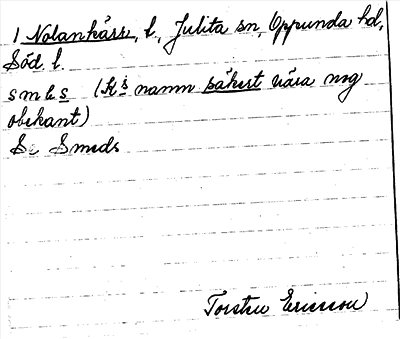 1 Nolankärr, l., Julita sn, Oppunda hd,
Söd. l.
smks (k s namn säkert vara nog
obekant)
Se Smeds
Torsten Ericsson